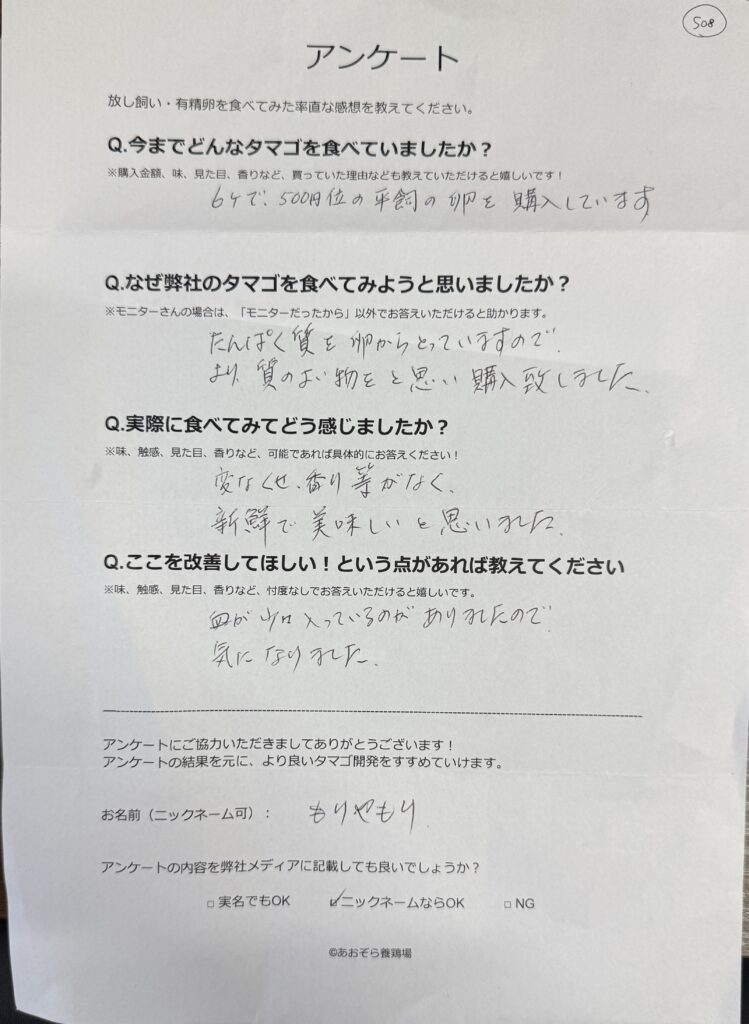 508
アンケート
放し飼い・有精卵を食べてみた率直な感想を教えてください。
Q.今までどんなタマゴを食べていましたか？
※購入金額、味、見た目、香りなど、買っていた理由なども教えていただけると嬉しいです！
6ケで、500円位の平飼の卵を購入しています
Q.なぜ弊社のタマゴを食べてみようと思いましたか？
※モニターさんの場合は、「モニターだったから」以外でお答えいただけると助かります。
たんぱく質を卵からとっていますので、
より、質のよい物をと思い購入致しました、
Q.実際に食べてみてどう感じましたか？
※味、触感、見た目、香りなど、可能であれば具体的にお答えください！
変なくせ、香り等がなく、
新鮮で美味しいと思いました、
Q.ここを改善してほしい！という点があれば教えてください
※味、触感、見た目、香りなど、忖度なしでお答えいただけると嬉しいです。
血が少々入っているのがありましたので
気になりました、
アンケートにご協力いただきましてありがとうございます！
アンケートの結果を元に、より良いタマゴ開発をすすめていけます。
お名前（ニックネーム可）： もりやもり
アンケートの内容を弊社メディアに記載しても良いでしょうか？
□ 実名でもOK ☑ニックネームならOK □ NG
©あおぞら養鶏場